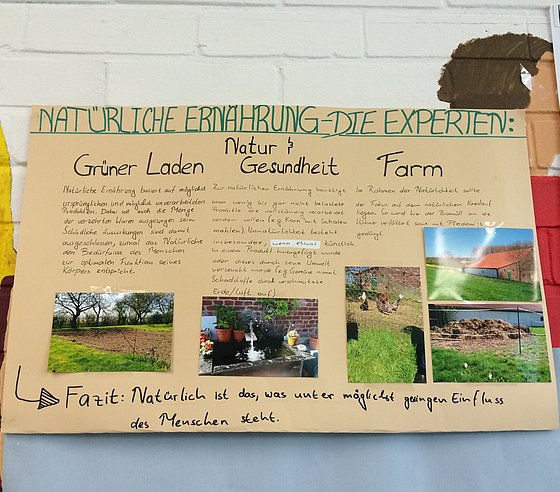 NATÜRLICHE ERNÄHRUNG-DIE EXPERTEN:
Grüner Laden
Natürliche Ernährung basiert auf möglichst
ursprünglichen und möglichst unverarbeiteten
Produkten. Dabei soll auch die Menge
der verzehrten Waren ausgewogen sein.
Schädliche Auswirkungen sind damit
ausgeschlossen, zumal das Natürliche
den Bedürfnissen des Menschen
zur optimalen Funktion seines
Körpers entspricht.
Natur &
Gesundheit
Zur natürlichen Ernährung benötigt
man wenig bis gar nicht belastete
Produkte die vollständig verarbeitet
werden sollen (e.g. Korn mit Schalen
mahlen). Unnatürlichkeit besteht
insbesondere, wenn etwas künstlich
zu einem Produkt hinzugefügt wurde
oder dieses durch seine Umwelt
verseucht wurde (e.g. Gemüse nimmt
Schadstoffe durch verschmutzte
Erde/Luft auf)
Farm
Im Rahmen der Natürlichkeit sollte
der Fokus auf dem natürlichen Kreislauf
liegen. So wird bei der Biomüll an die
Hühner verfüttert bzw. mit Pferdemist
gedüngt.
Fazit: Natürlich ist das, was unter möglichst geringen Einfluss
des Menschen steht.